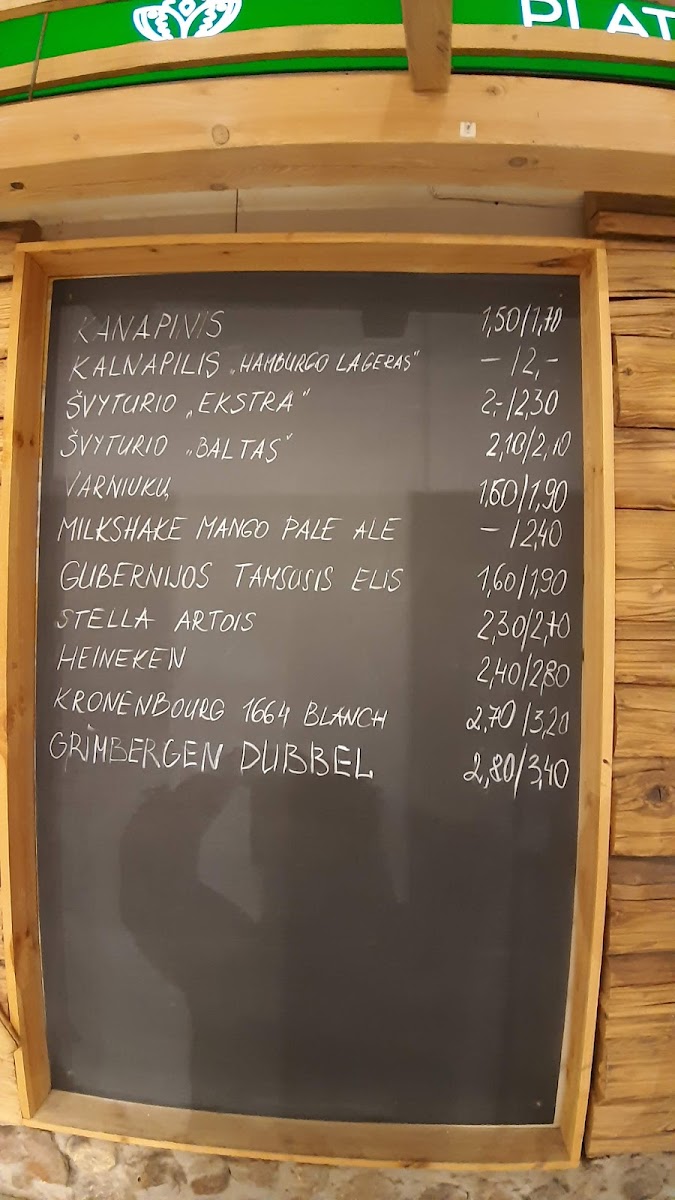 PLAT
KANAPINIS 1,50/1,70
KALNAPILIS „HAMBURGO LAGERAS" - /2,-
ŠVYTURIO „EKSTRA" 2,-/2,30
ŠVYTURIO „BALTAS" 2,10/2,10
VARNIUKŲ 1,60/1,90
MILKSHAKE MANGO PALE ALE - /2,40
GUBERNIJOS TAMSUSIS ELIS 1,60/1,90
STELLA ARTOIS 2,30/2,70
HEINEKEN 2,40/2,80
KRONENBOURG 1664 BLANCH 2,70/3,20
GRIMBERGEN DUBBEL 2,80/3,40